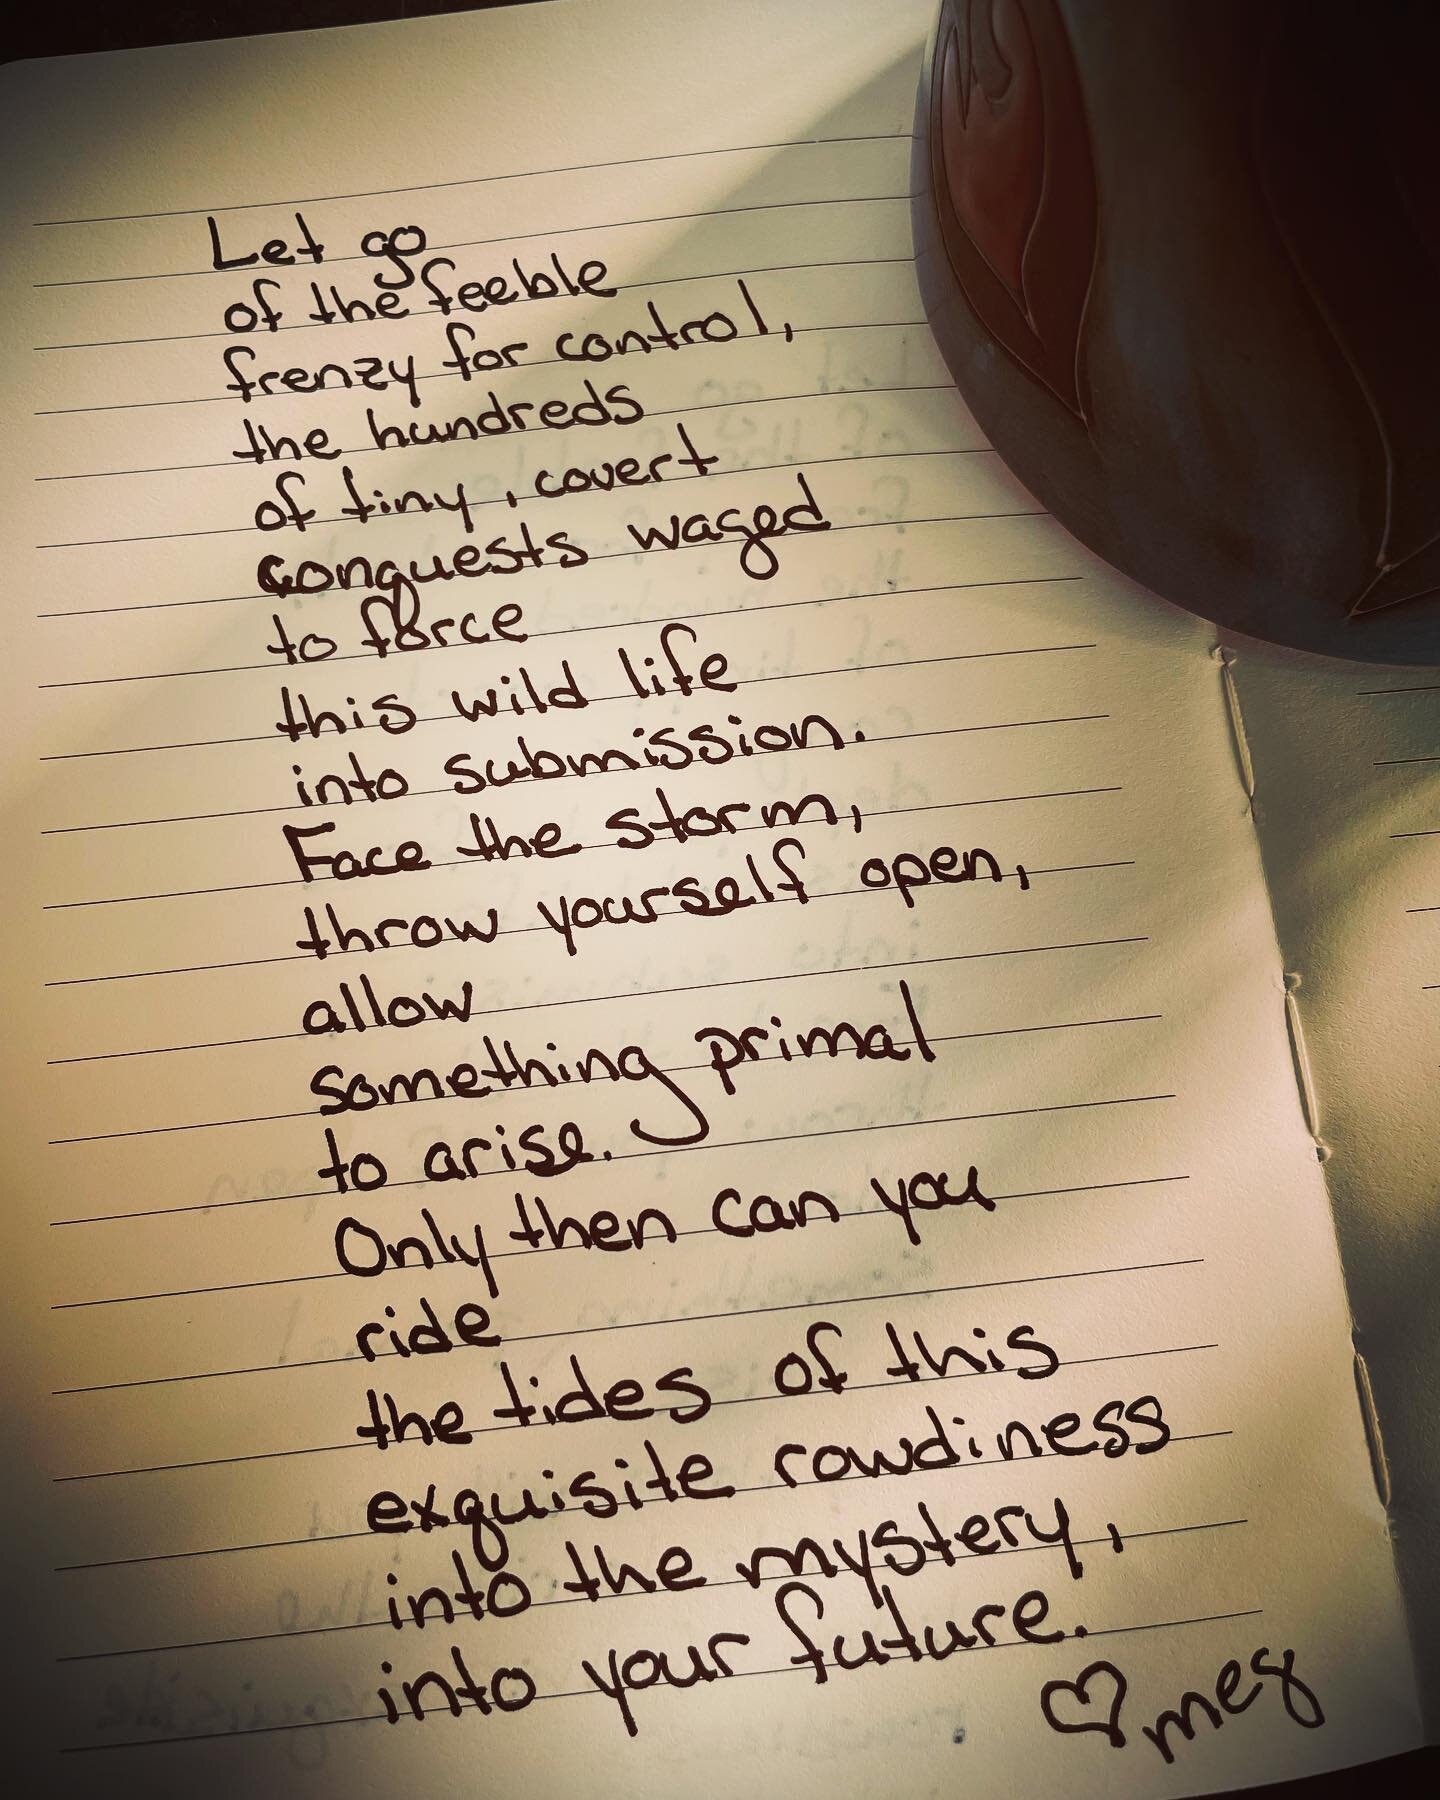 Let go
of the feeble
frenzy for control,
the hundreds
of tiny, covert
conquests waged
to force
this wild life
into submission.
Face the storm,
throw yourself open,
allow
something primal
to arise.
Only then can you
ride
the tides of this
exquisite rowdiness
into the mystery,
into your future.
♡ meg